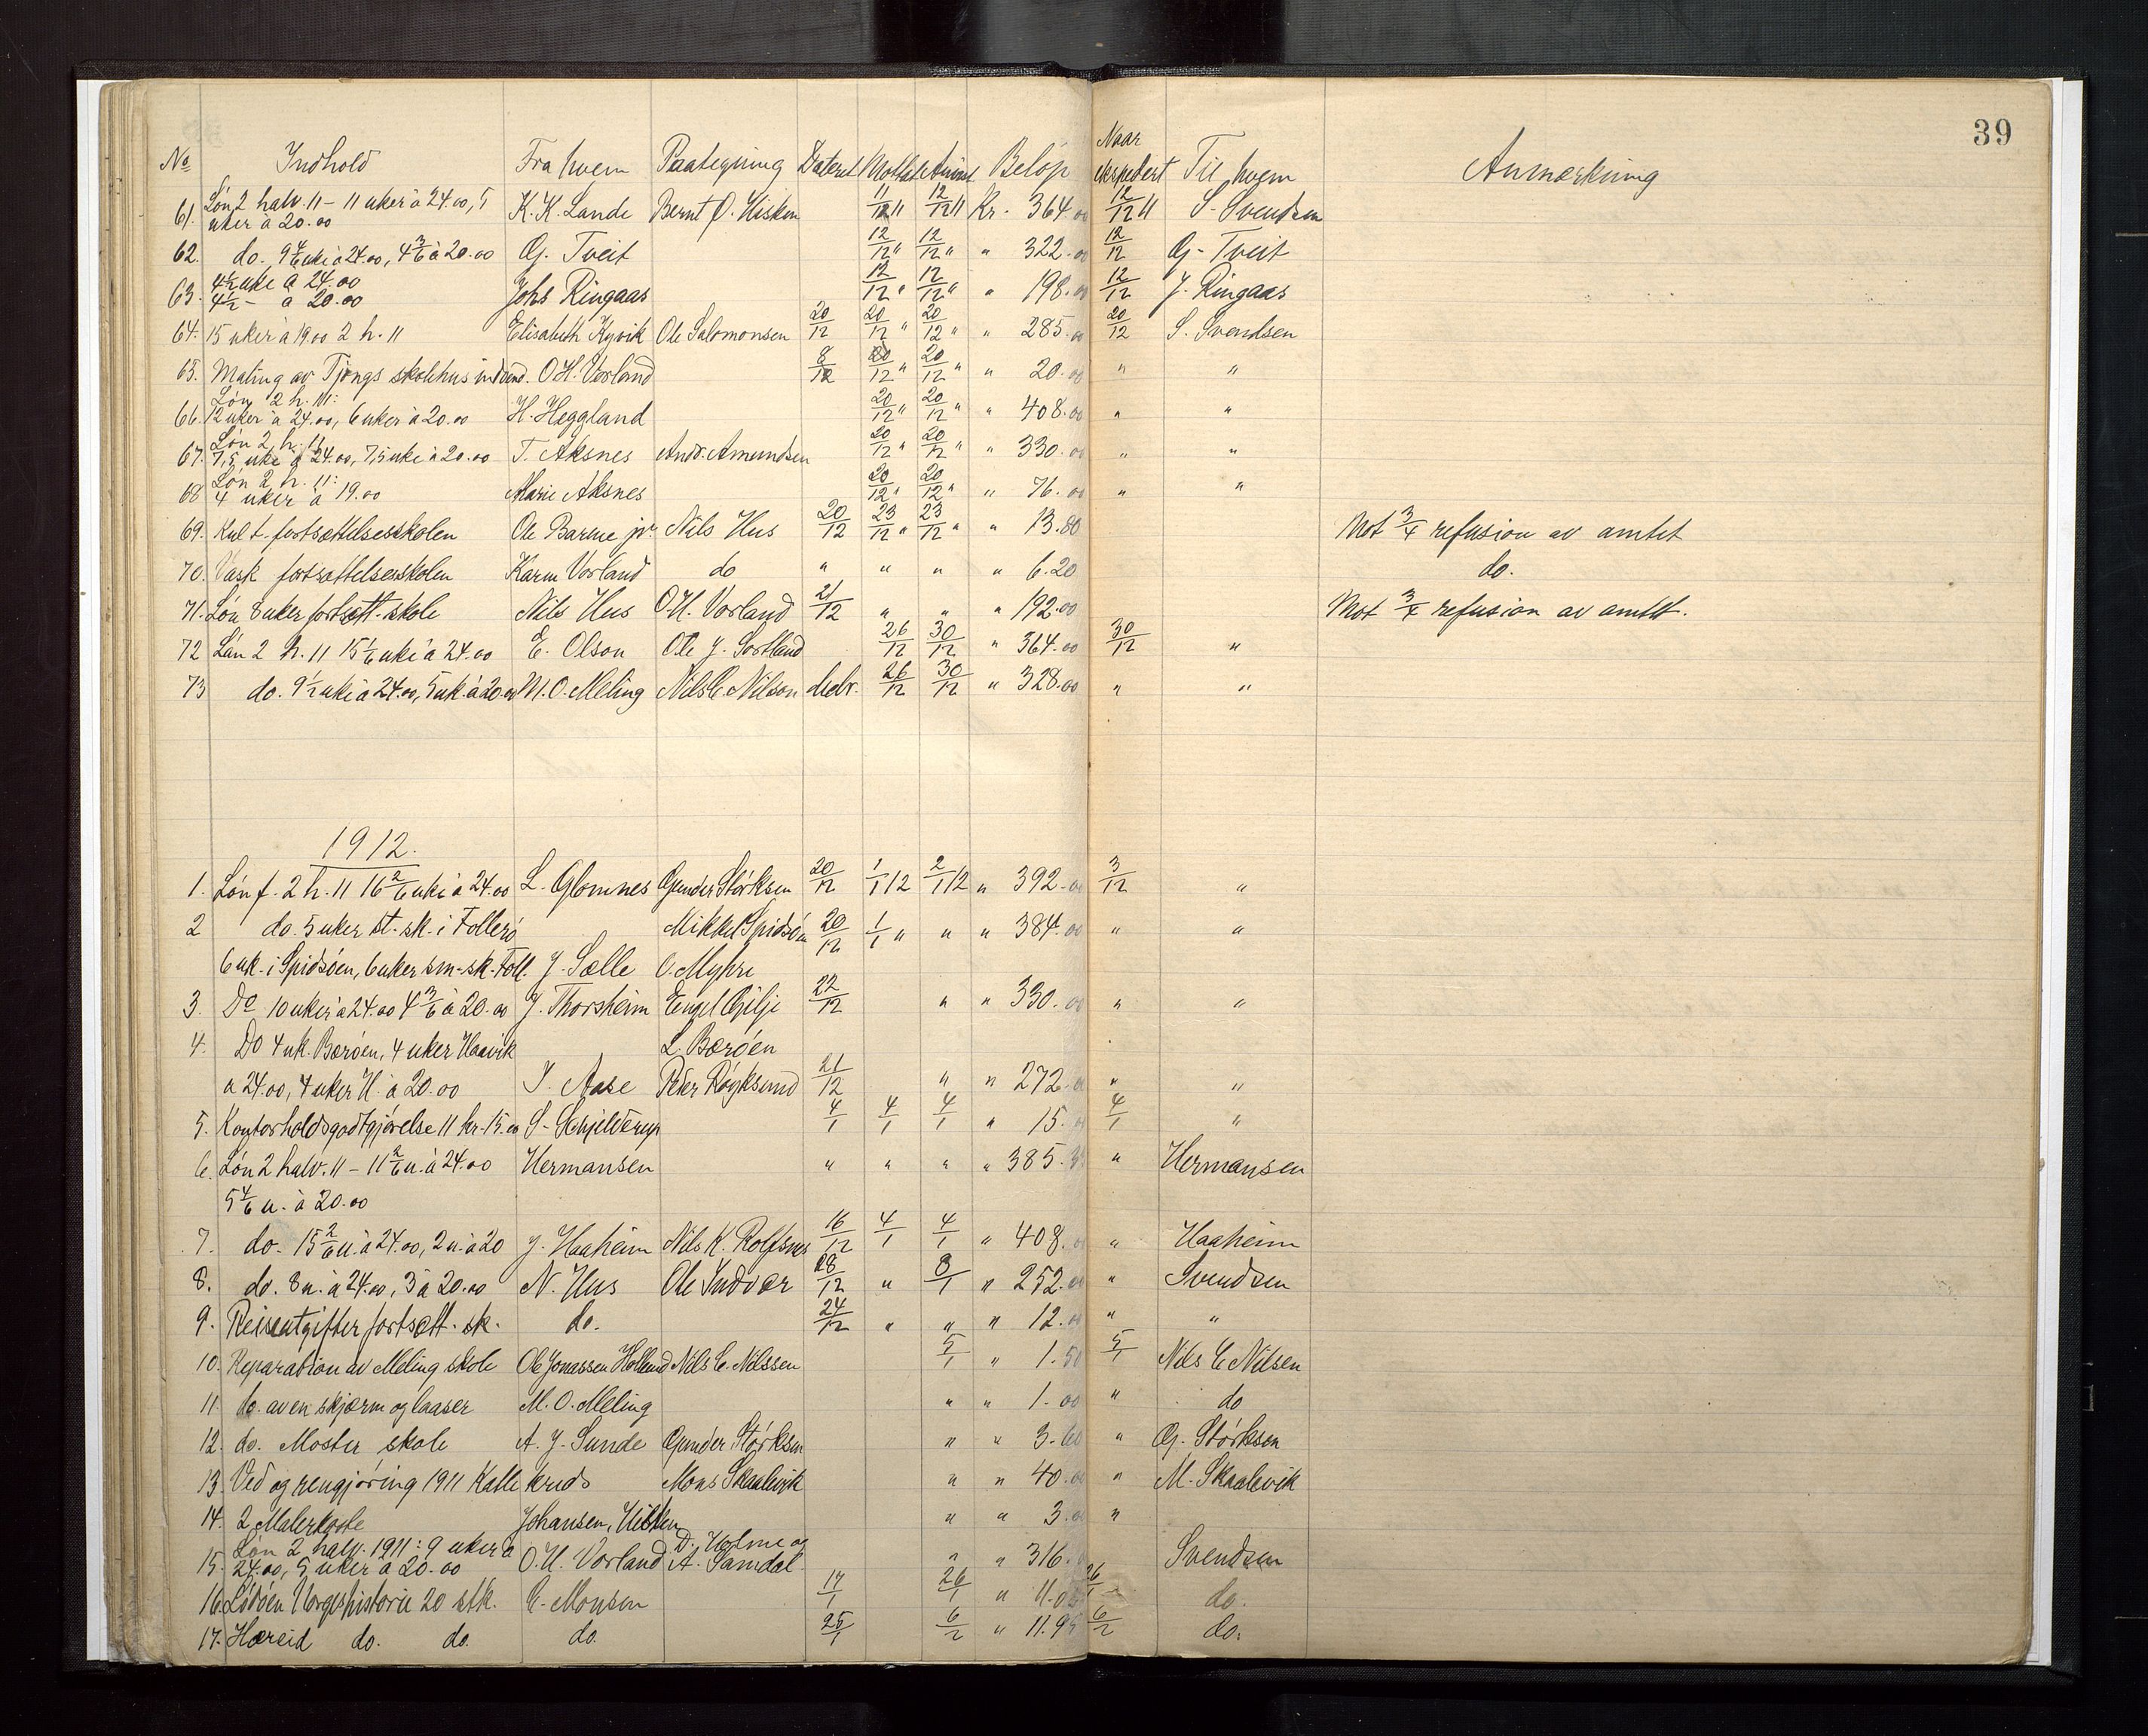 39
No Indhold Fra hvem Paategning Dateret Mottat Anvist Beløp Naar ekspedert Til hvem Anmerkning
61. Løn 2 halv. 11 - 11 uker à 24.00, 5 uker à 20.00 K. K. Lande Bernt O. Hisken 11/12 11 12/12 11 Kr. 364.00 12/12 11 S. Svendsen
62. do. 9 4/6 uke à 24.00, 4 3/6 à 20.00 G. Tveit 12/12 " 12/12 " " 322.00 12/12 G. Tveit
63. 4 1/2 uke à 24.00
4 1/2 - à 20.00 Johs Ringaas 12/12 " 12/12 " " 198.00 12/12 J. Ringaas
64. 15 uker à 19.00 2 h. 11 Elisabeth Kyvik Ole Salomonsen 20/12 20/12 " 20/12 " " 285.00 20/12 S. Svendsen
65. Maling av Tjongs skolehus indvend. O. H. Vorland 8/12 20/12 " 20/12 " " 20.00 " "
66. Løn 2 h. 11:
12 uker à 24.00, 6 uker à 20.00 H. Heggland 20/12 " 20/12 " " 408.00 " "
67. Løn 2. h. 11
7,5 uke à 24.00, 7,5 uke à 20.00 T. Aksnes Andr. Amundsen 20/12 " 20/12 " " 330.00 " "
68 Løn 2 h. 11:
4 uker à 19.00 Marie Aksnes 20/12 " 20/12 " " 76.00 " "
69. Kul t. fortsættelsesskolen Ole Barane jr. Nils Hus 20/12 23/12 " 23/12 " " 13.80 Mot 3/4 refusion av amtet
70. Vask fortsættelsesskolen Karen Vorland do " " " " 6.20 do.
71. Løn 8 uker fortsætt. skole Nils Hus O. H. Vorland 21/12 " " " 192.00 Mot 3/4 refusion av amtet.
72 Løn 2 h. 11 15 1/6 uke à 24.00 E. Olson Ole J. Sortland 26/12 30/12 " 364.00 30/12 "
73 do. 9 1/2 uke à 24.00, 5 uk. à 20.00 M. O. Meling Nils C. Nilson debr. 26/12 30/12 " 328.00 " "
1912.
1. Løn f. 2 h. 11 16 2/6 uke à 24.00 L. Glomnes Gunder Størksen 20/12 1/1 12 2/1 12 " 392.00 3/12 "
2 do. 5 uker st. sk. i Føllerø Mikkel Spidsøn 20/12 1/1 " " " 384.00 " "
6 uk. i Spidsøen, 6 uker sm-sk. Føll. J. Sælle O. Myhre
3. Do 10 uker à 24.00 4 3/6 à 20.00 J. Thorsheim Engel Gilje 22/12 " " 330.00 " "
4. Do 4 uk. Børøen, 4 uker Haavik L. Børøen
à 24.00, 4 uker H. à 20.00 I. Aase Peder Røyksund 21/12 " " 272.00 " "
5. Kontorholdsgodtgjørelse 11 kr. 15.00 S. Schjelderup 4/1 4/1 4/1 " 15.00 4/1 "
6. Løn 2 halv. 11 - 11 2/6 u. à 24.00 Hermansen " " " " 385.33 " Hermansen
5 4/6 u. à 20.00
7. do. 15 2/6 u. à 24.00, 2 u. à 20 J. Haaheim Nils K. Rolfsnes 16/12 4/1 4/1 " 408.00 " Haaheim
8. do. 8 u. à 24.00, 3 à 20.00 N. Hus Ole Indvær 28/12 " 8/1 " 252.00 " Svendsen
9. Reiseutgifter fortsætt. sk. do. 24/12 " " " 12.00 " "
10. Reparation av Meling skole Ole Jonassen Holland Nils C. Nilssen 5/1 " 1.50 5/1 Nils C Nilsen
11. do. av en skjærm og laaser M. O. Meling " " 1.00 " do
12. do. Moster skole A. J. Sunde Gunder Størksen " " 3.60 " G. Størksen
13. Ved og rengjøring 1911 Kalle kreds Mons Skaalevik " " 40.00 " M. Skaalevik
14. 2 Malerkoste Johansen, Hisken " " 3.00 "
15. Løn 2 halv. 1911: 9 uker à
24.00, 5 uker à 20.00 O. H. Vorland D. Holme og A. Samdal. " " 316. Svendsen
16. Lødøen Norgeshistorie 20 stk. C. Monsen 17/1 26/1 " 11.05 26/1 do.
17. Hæreid do. do. do. 25/1 6/2 " 11.95 6/2 do.